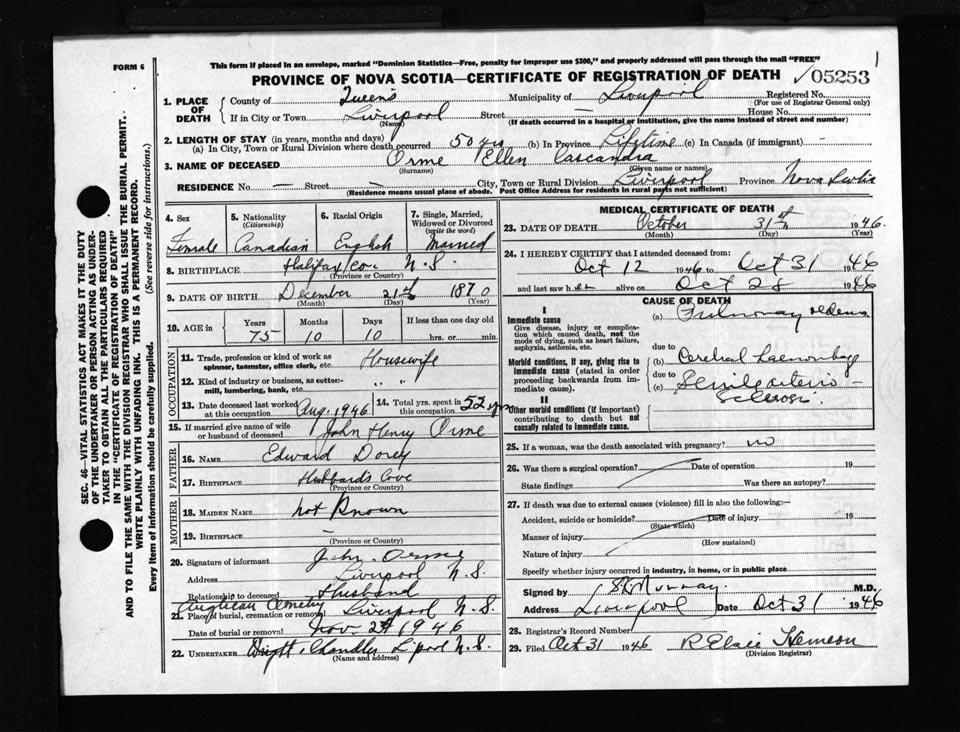 FORM 6
This form if placed in an envelope, marked "Dominion Statistics—Free, penalty for improper use $300," and properly addressed will pass through the mail "FREE"
1
PROVINCE OF NOVA SCOTIA—CERTIFICATE OF REGISTRATION OF DEATH
05253
SEC. 46—VITAL STATISTICS ACT MAKES IT THE DUTY
OF THE UNDERTAKER OR PERSON ACTING AS UNDER-
TAKER TO OBTAIN ALL THE PARTICULARS REQUIRED
IN THE "CERTIFICATE OF REGISTRATION OF DEATH"
AND TO FILE THE SAME WITH THE DIVISION REGISTRAR WHO SHALL ISSUE THE BURIAL PERMIT.
WRITE PLAINLY WITH UNFADING INK. THIS IS A PERMANENT RECORD.
Every item of information should be carefully supplied. (See reverse side for instructions.)
1. PLACE OF DEATH
County of Queens Municipality of Liverpool Registered No.
(For use of Registrar General only)
If in City or Town Liverpool Street — House No.
(Name) (If death occurred in a hospital or institution, give the name instead of street and number)
2. LENGTH OF STAY (in years, months and days)
(a) In City, Town or Rural Division where death occurred 50 yrs (b) In Province Lifetime (c) In Canada (if immigrant)
3. NAME OF DECEASED Orme Ellen Cascandra
(Surname) (Given name or names)
RESIDENCE No. — Street — City, Town or Rural Division Liverpool Province Nova Scotia
(Residence means usual place of abode. Post Office Address for residents in rural parts not sufficient)
4. Sex Female
5. Nationality (Citizenship) Canadian
6. Racial Origin English
7. Single, Married, Widowed or Divorced (write the word) Married
8. BIRTHPLACE Halifax Co. N.S.
(Province or Country)
9. DATE OF BIRTH December 21st 1870
(Month) (Day) (Year)
10. AGE in Years Months Days If less than one day old
75 10 10 hrs. or min.
OCCUPATION
11. Trade, profession or kind of work as spinner, teamster, office clerk, etc. Housewife
12. Kind of industry or business, as cotton-mill, lumbering, bank, etc. " "
13. Date deceased last worked at this occupation Aug. 1946
14. Total yrs. spent in this occupation 52 yrs
15. If married give name of wife or husband of deceased John Henry Orme
FATHER
16. NAME Edward Dorey
17. BIRTHPLACE Hubbards Cove
(Province or Country)
MOTHER
18. MAIDEN NAME Not Known
19. BIRTHPLACE —
(Province or Country)
20. Signature of informant John Orme
Address Liverpool N.S.
Relationship to deceased Husband
Anglican Cemetery
21. Place of burial, cremation or removal Liverpool N.S.
Date of burial or removal Nov. 2nd 1946
22. UNDERTAKER Wright & Chandler L'pool N.S.
(Name and address)
MEDICAL CERTIFICATE OF DEATH
23. DATE OF DEATH October 31st 1946
(Month) (Day) (Year)
24. I HEREBY CERTIFY that I attended deceased from:
Oct 12 1946 to Oct 31 1946
and last saw her alive on Oct 28 1946
CAUSE OF DEATH
I
Immediate cause
Give disease, injury or complication which caused death, not the mode of dying, such as heart failure, asphyxia, asthenia, etc.
(a) Pulmonary oedema
due to
Morbid conditions, if any, giving rise to immediate cause (stated in order proceeding backwards from immediate cause).
(b) Cerebral haemorrhage
due to
(c) Senile arterio-sclerosis
II
Other morbid conditions (if important) contributing to death but not causally related to immediate cause.
25. If a woman, was the death associated with pregnancy? no
26. Was there a surgical operation? Date of operation 19
State findings Was there an autopsy?
27. If death was due to external causes (violence) fill in also the following:—
Accident, suicide or homicide? Date of injury 19
(State which)
Manner of injury
(How sustained)
Nature of injury
Specify whether injury occurred in industry, in home, or in public place
Signed by Murray M.D.
Address Liverpool Date Oct 31 1946
28. Registrar's Record Number
29. Filed Oct 31 1946
(Division Registrar)